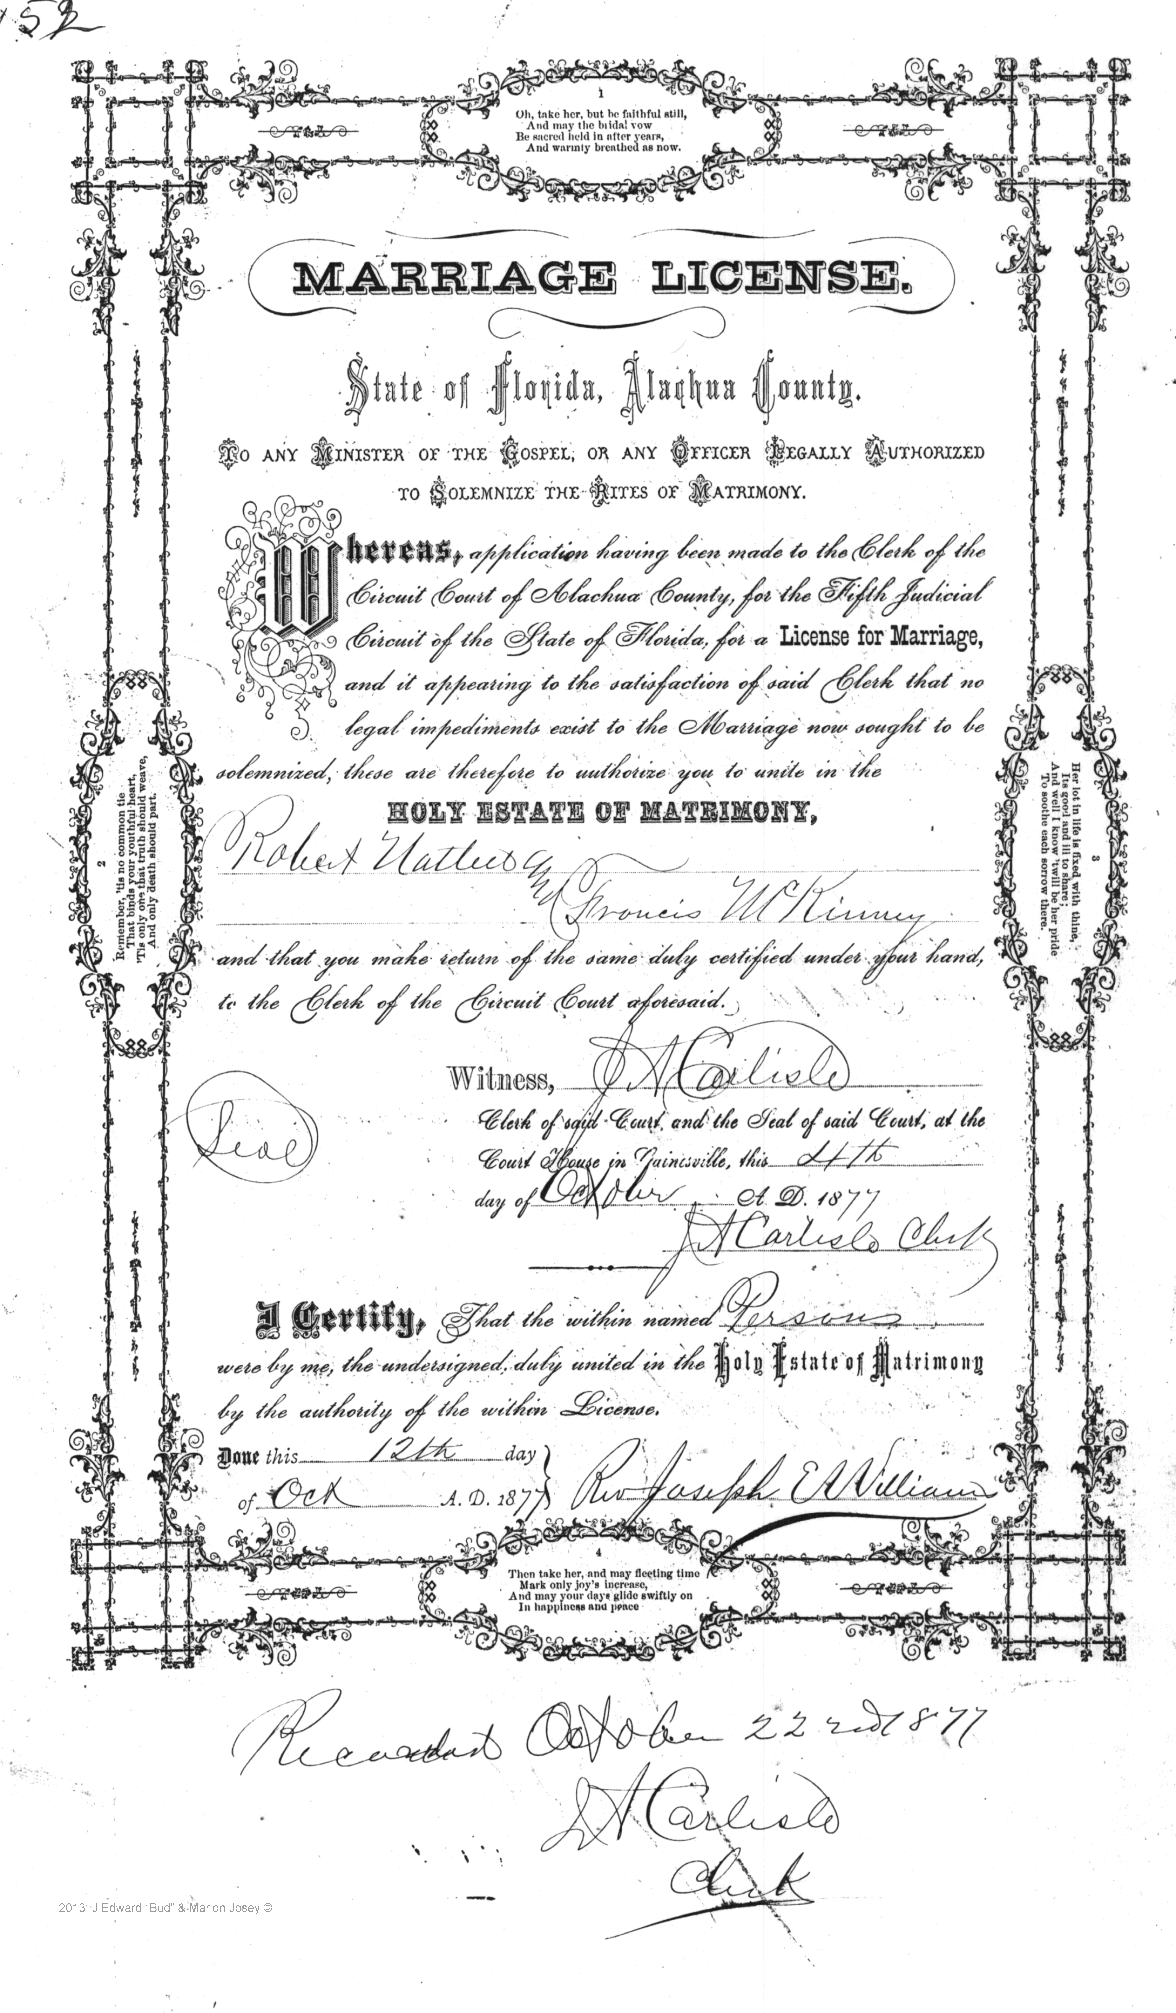 152
1
Oh, take her, but be faithful still,
And may the bridal vow
Be sacred held in after years,
And warmly breathed as now.
MARRIAGE LICENSE.
State of Florida, Alachua County.
TO ANY MINISTER OF THE GOSPEL, OR ANY OFFICER LEGALLY AUTHORIZED
TO SOLEMNIZE THE RITES OF MATRIMONY.
Whereas, application having been made to the Clerk of the
Circuit Court of Alachua County, for the Fifth Judicial
Circuit of the State of Florida, for a License for Marriage,
and it appearing to the satisfaction of said Clerk that no
legal impediments exist to the Marriage now sought to be
solemnized, these are therefore to authorize you to unite in the
HOLY ESTATE OF MATRIMONY,
Robert and
Francis McKinney
and that you make return of the same duly certified under your hand,
to the Clerk of the Circuit Court aforesaid.
2
Remember, 'tis no common tie
That binds your youthful heart,
'Tis only one that truth should weave,
And only death should part.
3
Her lot in life is fixed with thine,
Its good and ill to share;
And well I know 'twill be her pride
To soothe each sorrow there.
Witness, J A Carlisle
Clerk of said Court, and the Seal of said Court, at the
Court House in Gainesville, this 4th
day of October A. D. 1877
J A Carlisle Clerk
Seal
I Certify, That the within named Persons
were by me, the undersigned, duly united in the Holy Estate of Matrimony
by the authority of the within License.
Done this 12th day
of Oct A. D. 1877
Rev Joseph E A William
4
Then take her, and may fleeting time
Mark only joy's increase,
And may your days glide swiftly on
In happiness and peace
Recorded October 22nd 1877
J A Carlisle
Clerk
2013 J Edward "Bud" & Marion Josey ©